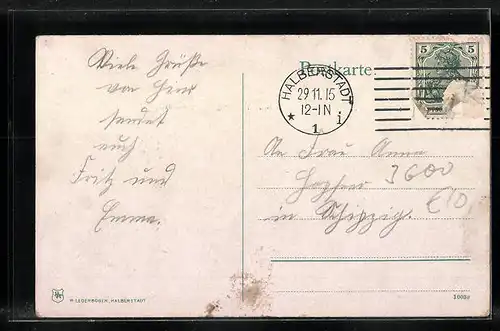 Postkarte
5 5
HALBERSTADT
29 11. 15
12-1N
* 1 i
Viele Grüße
von hier
sendet
euch
Fritz und
Emma.
An Frau Anna
3600
in
€10
R. LEDERBOGEN, HALBERSTADT